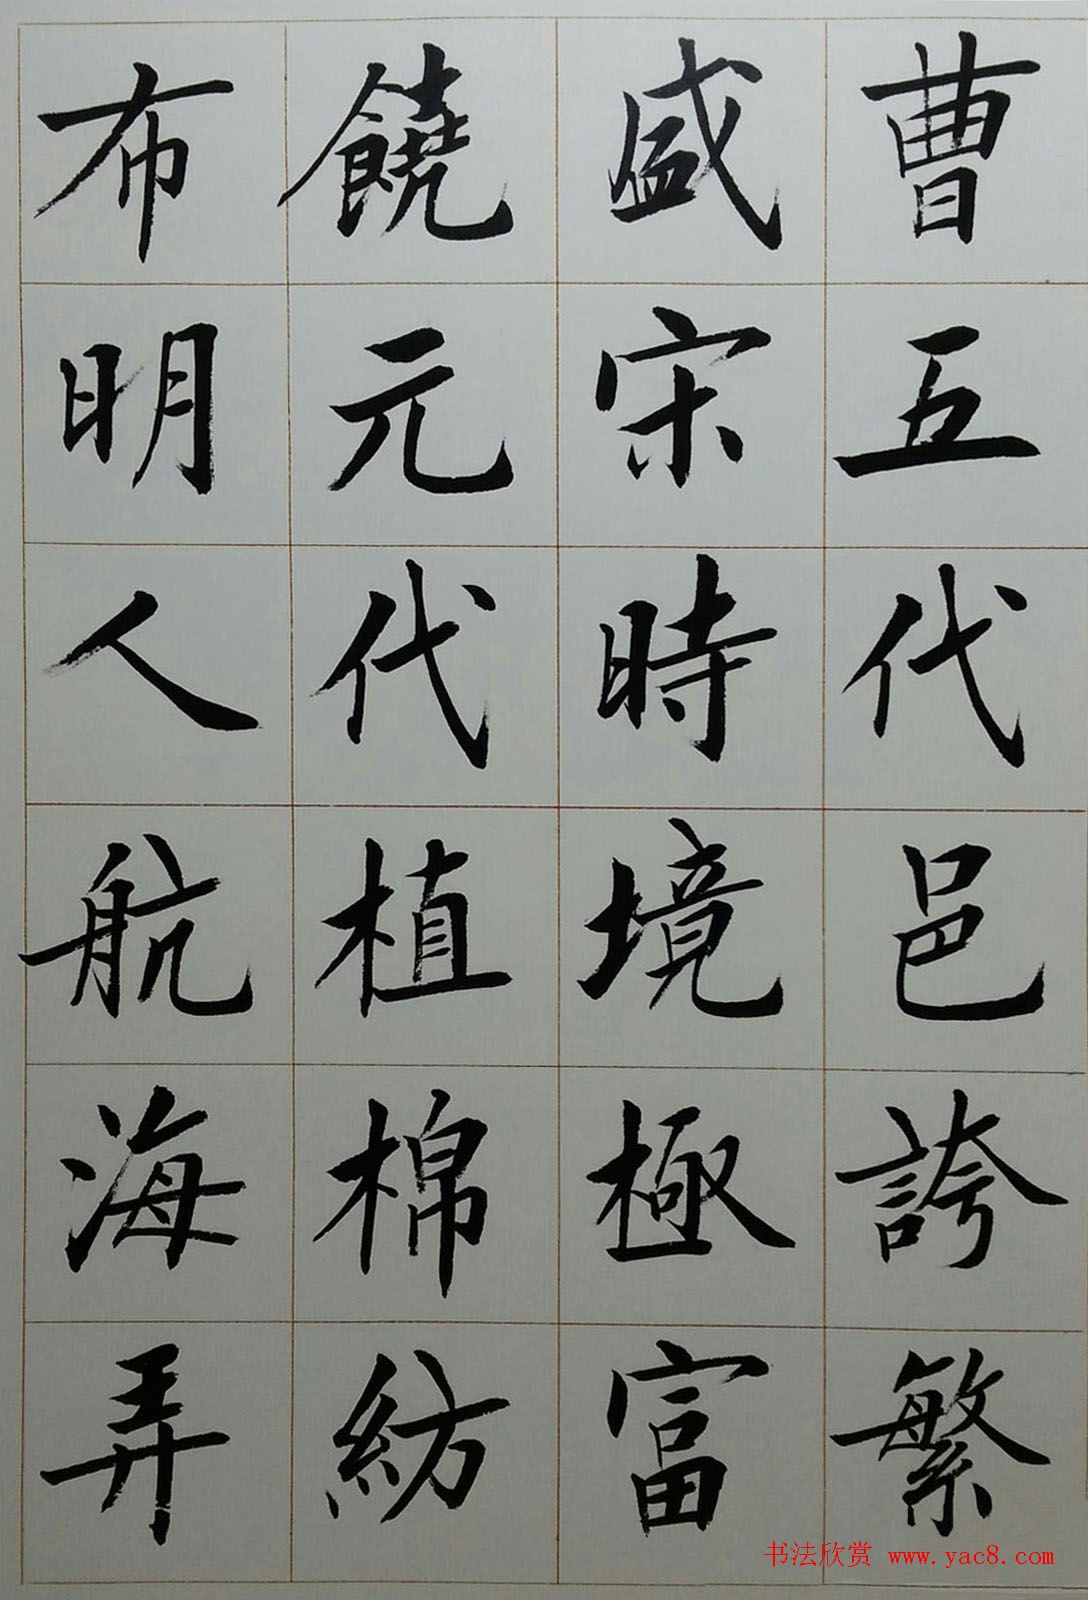 曹五代邑誇繁
盛宋時境極富
饒元代植棉紡
布明人航海弄
书法欣赏 www.yac8.com